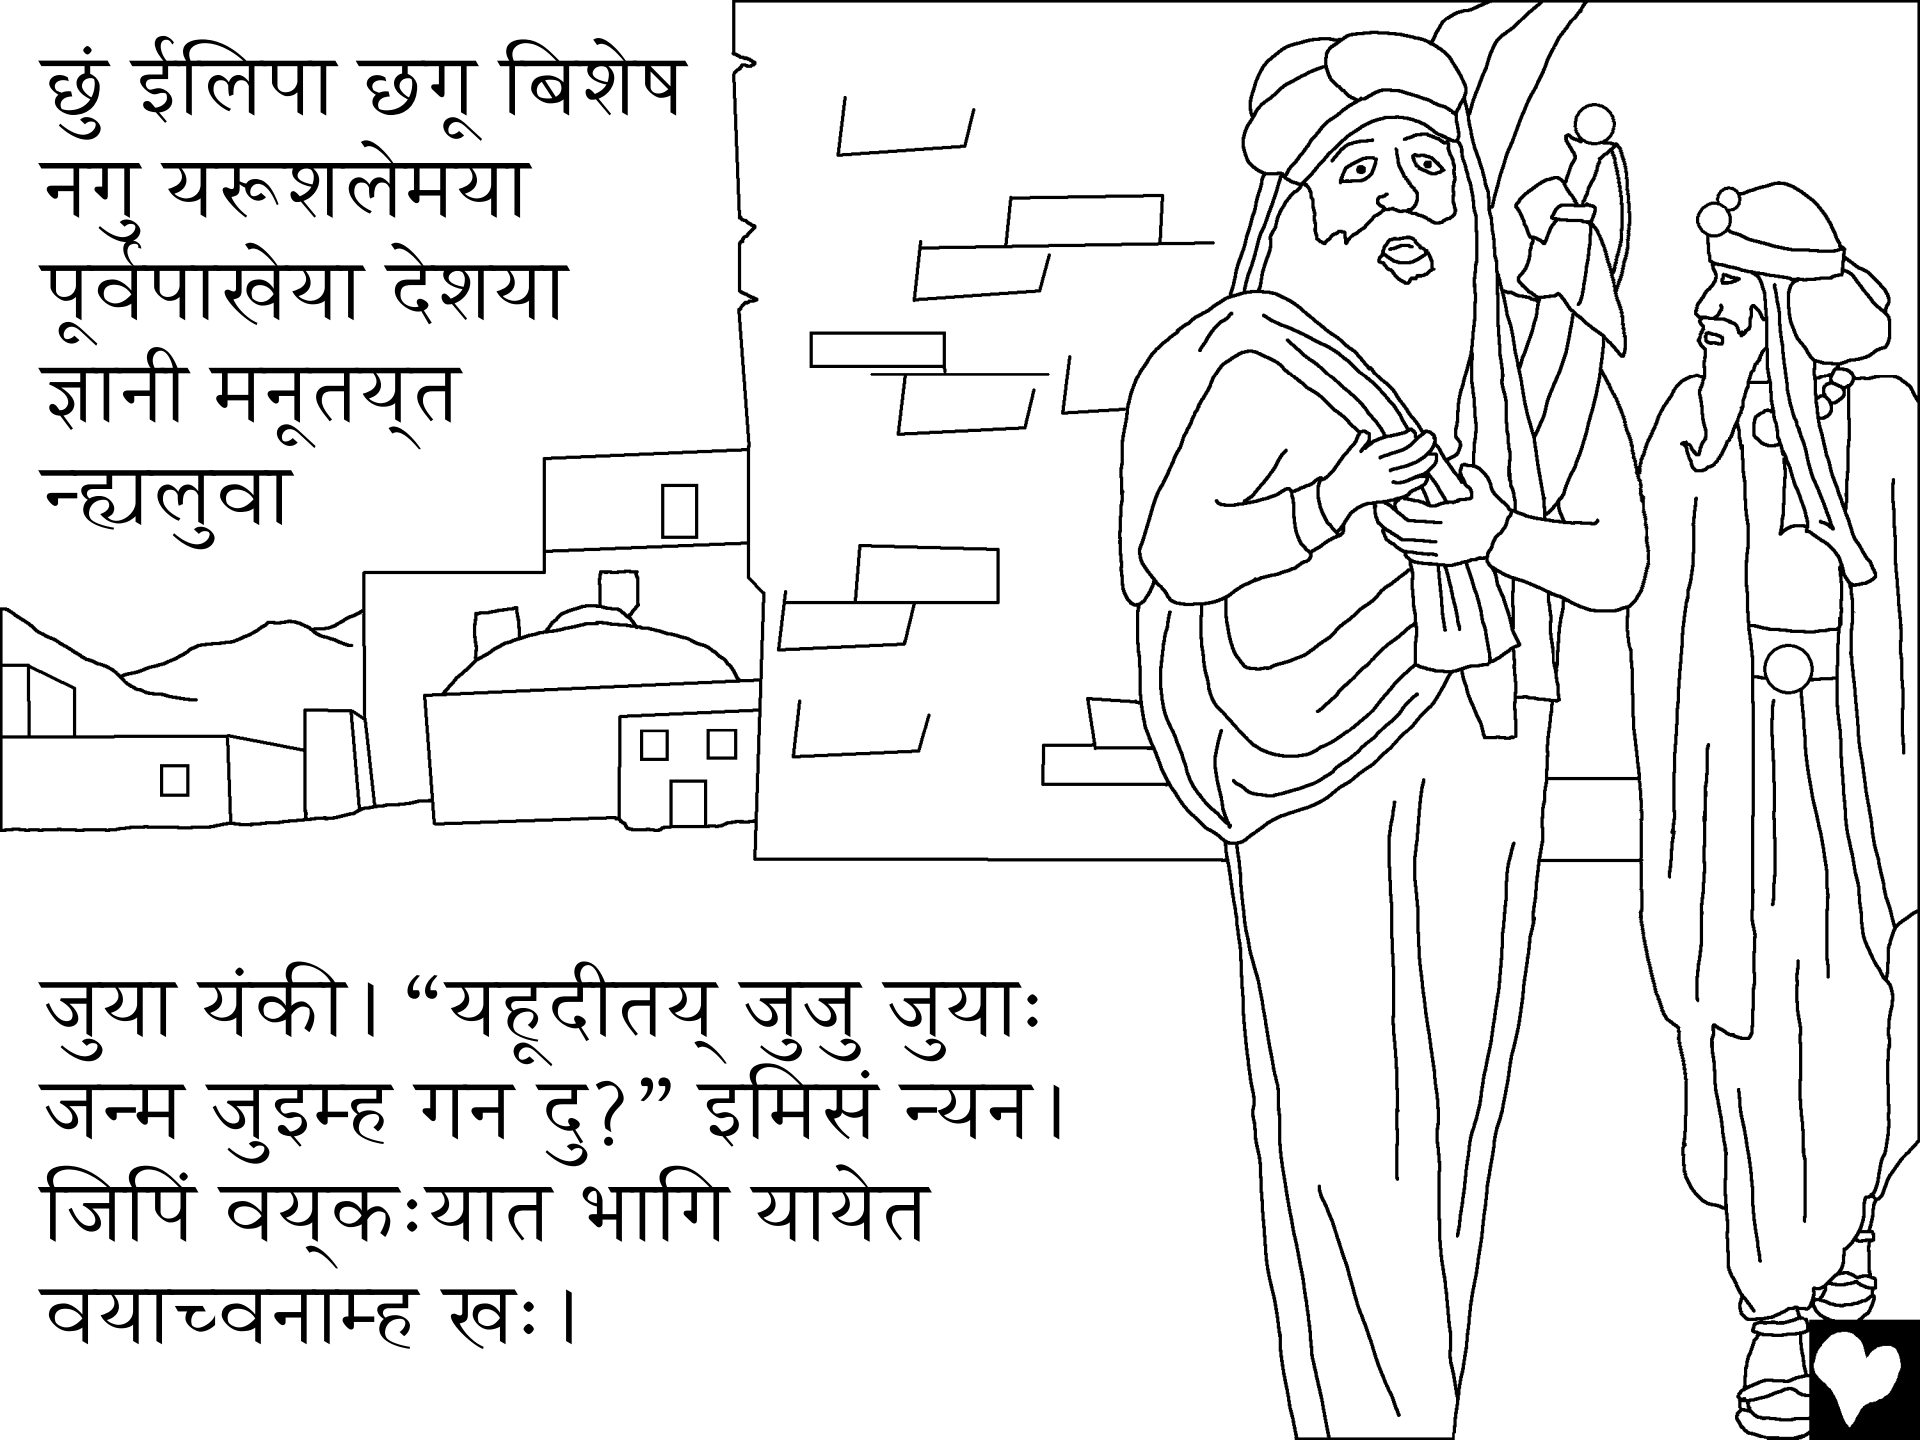 छुं ईलिपा छगू बिशेष
नगु यरूशलेमया
पूर्वपाखेया देशया
ज्ञानी मनूतय्‌त
न्ह्यलुवा
जुया यंकी। “यहूदीतय्‌ जुजु जुयाः
जन्म जुइम्ह गन दु?” इमिसं न्यन।
जिपिं वय्‌कःयात भागि यायेत
वयाच्वनाम्ह खः।